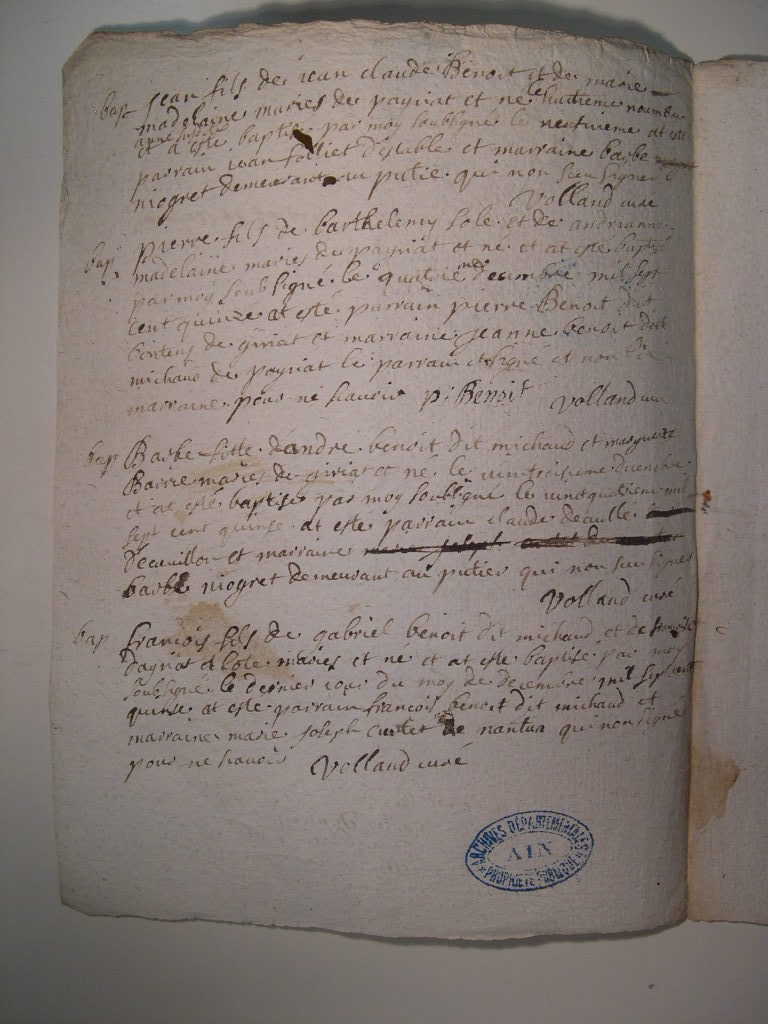 bap Jean fils de jean claude Benoit et de marie
madelaine maries de payriat et ne le huitieme novembre
et a esté baptise par moy soubsigne le neufvieme at esté
parrain jean folliet d'istable et marraine barbe
niogret demeurant au putie qui non sceu signer
Volland curé
bap pierre fils de barthelemy sole et de andrianne
madelaine maries de payriat et ne et at este baptise
par moy soubsigné le quatrieme decembre mil sept
cent quinze at esté parrain pierre Benoit dit
de giriat et marraine jeanne benoit dit
michaud de payriat le parrain at signé et non la
marraine pour ne scavoir p. Benoit Volland curé
bap Barbe fille d'andre benoit dit michaud et marguerite
Barrie maries de giriat et né le vintroisieme decembre
et at esté baptise par moy soubsigne le vintquatrieme mil
sept cent quinse at este parrain claude decuille
Decuvillon et marraine
barbe niogret demeurant au putier qui non sceu signer
Volland curé
bap francois fils de gabriel benoit dit michaud et de francoise
Dagriat maries et ne et at este baptise par moy
soubsigné le dernier jour du moy de decembre mil sept cent
quinse at este parrain francois benoit dit michaud et
marraine marie joseph curtet de nantua qui non signé
pour ne scavoir Volland curé
ARCHIVES DÉPARTEMENTALES
AIN
PROPRIÉTÉ PUBLIQUE